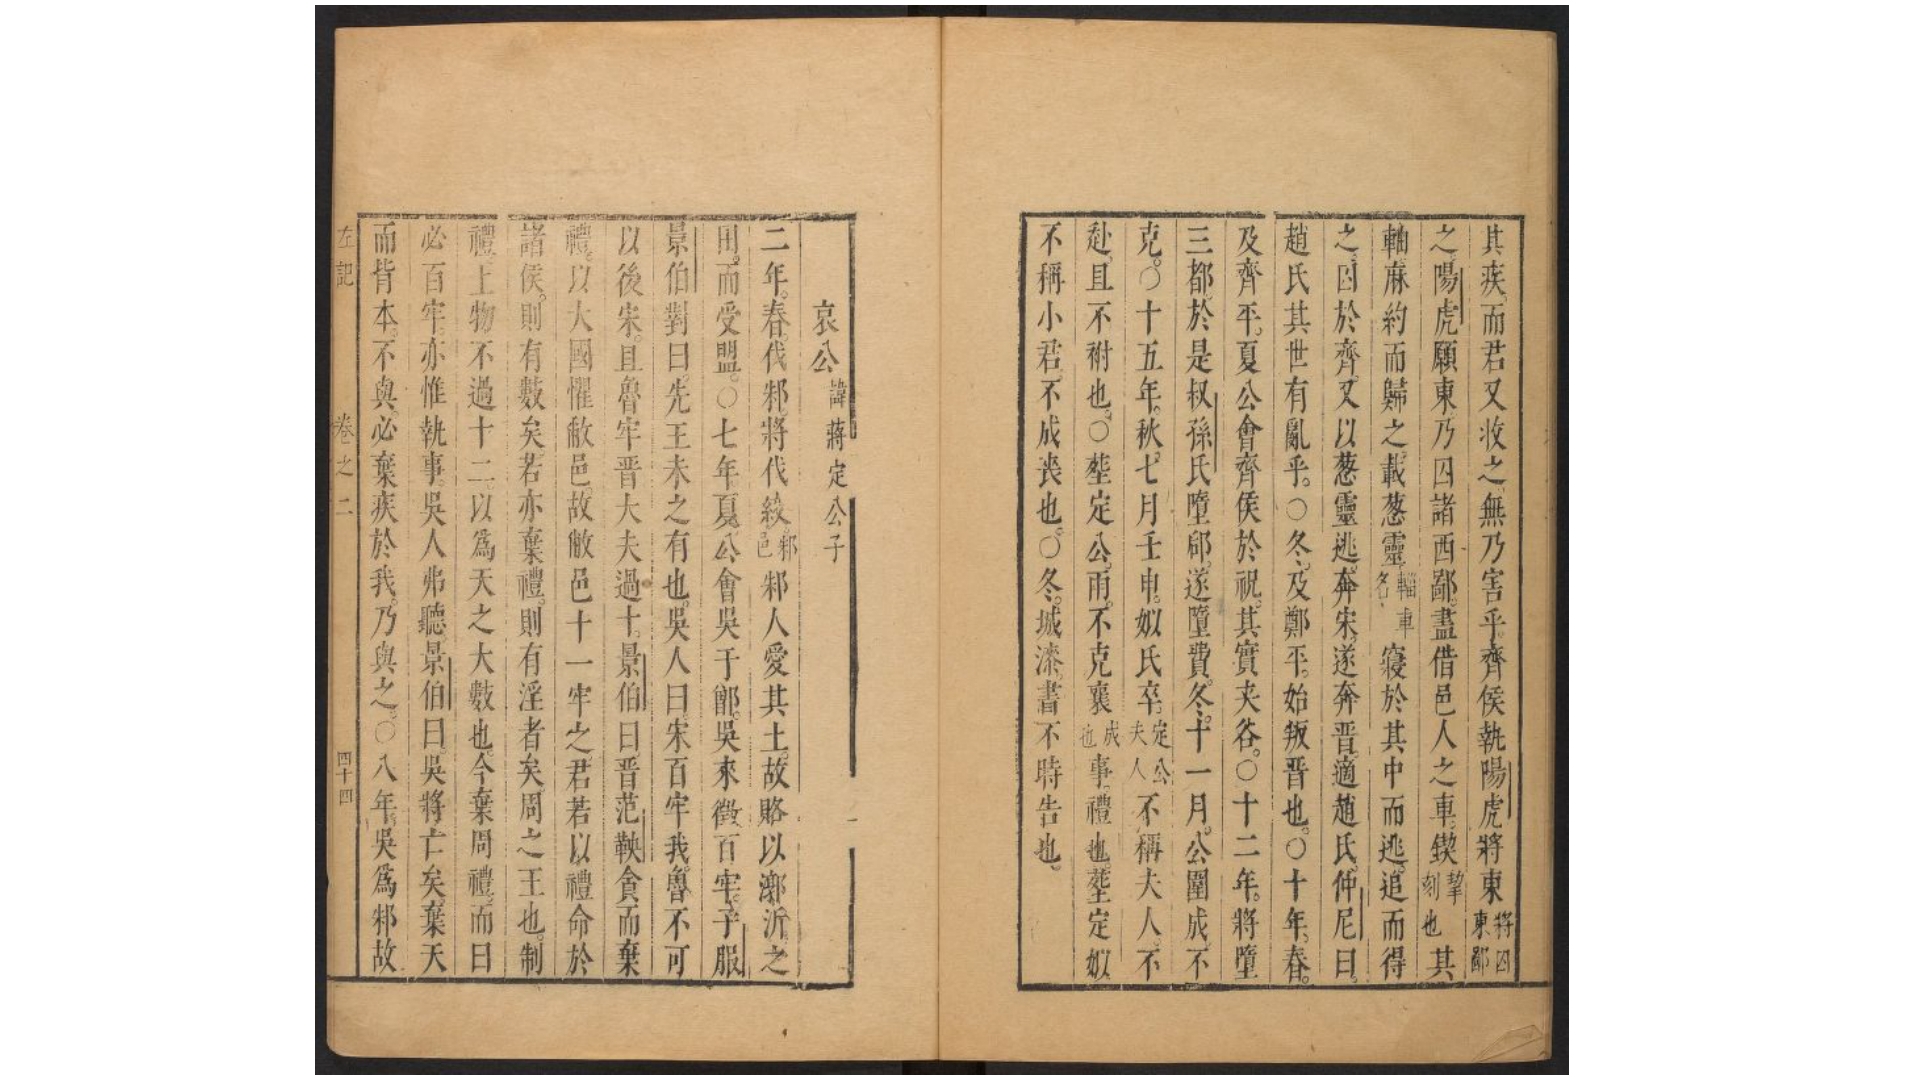 其疾而君又收之無乃害乎齊侯執陽虎將東將囚東鄙
之陽虎願東乃囚諸西鄙盡借邑人之車鍥挈刻也其
軸麻約而歸之載葱靈輜車名寢於其中而逃追而得
之囚於齊又以葱靈逃奔宋遂奔晉適趙氏仲尼曰
趙氏其世有亂乎○冬及鄭平始叛晉也○十年春
及齊平夏公會齊侯於祝其實夾谷○十二年將墮
三都於是叔孫氏墮郈遂墮費冬十一月公圍成不
克○十五年秋七月壬申姒氏卒定公夫人不稱夫人不
赴且不祔也○塟定公雨不克襄成也事禮也塟定姒
不稱小君不成喪也○冬城漆書不時告也
哀公諱蔣定公子
二年春伐邾將伐絞邾邑邾人愛其土故賂以漷沂之
田而受盟○七年夏公會吳于鄫吳來徵百牢子服
景伯對曰先王未之有也吳人曰宋百牢我魯不可
以後宋且魯牢晉大夫過十景伯曰晉范鞅貪而棄
禮以大國懼敝邑故敝邑十一牢之君若以禮命於
諸侯則有數矣若亦棄禮則有淫者矣周之王也制
禮上物不過十二以爲天之大數也今棄周禮而曰
必百牢亦惟執事吳人弗聽景伯曰吳將亡矣棄天
而背本不與必棄疾於我乃與之○八年吳爲邾故
左記 卷之二 四十四